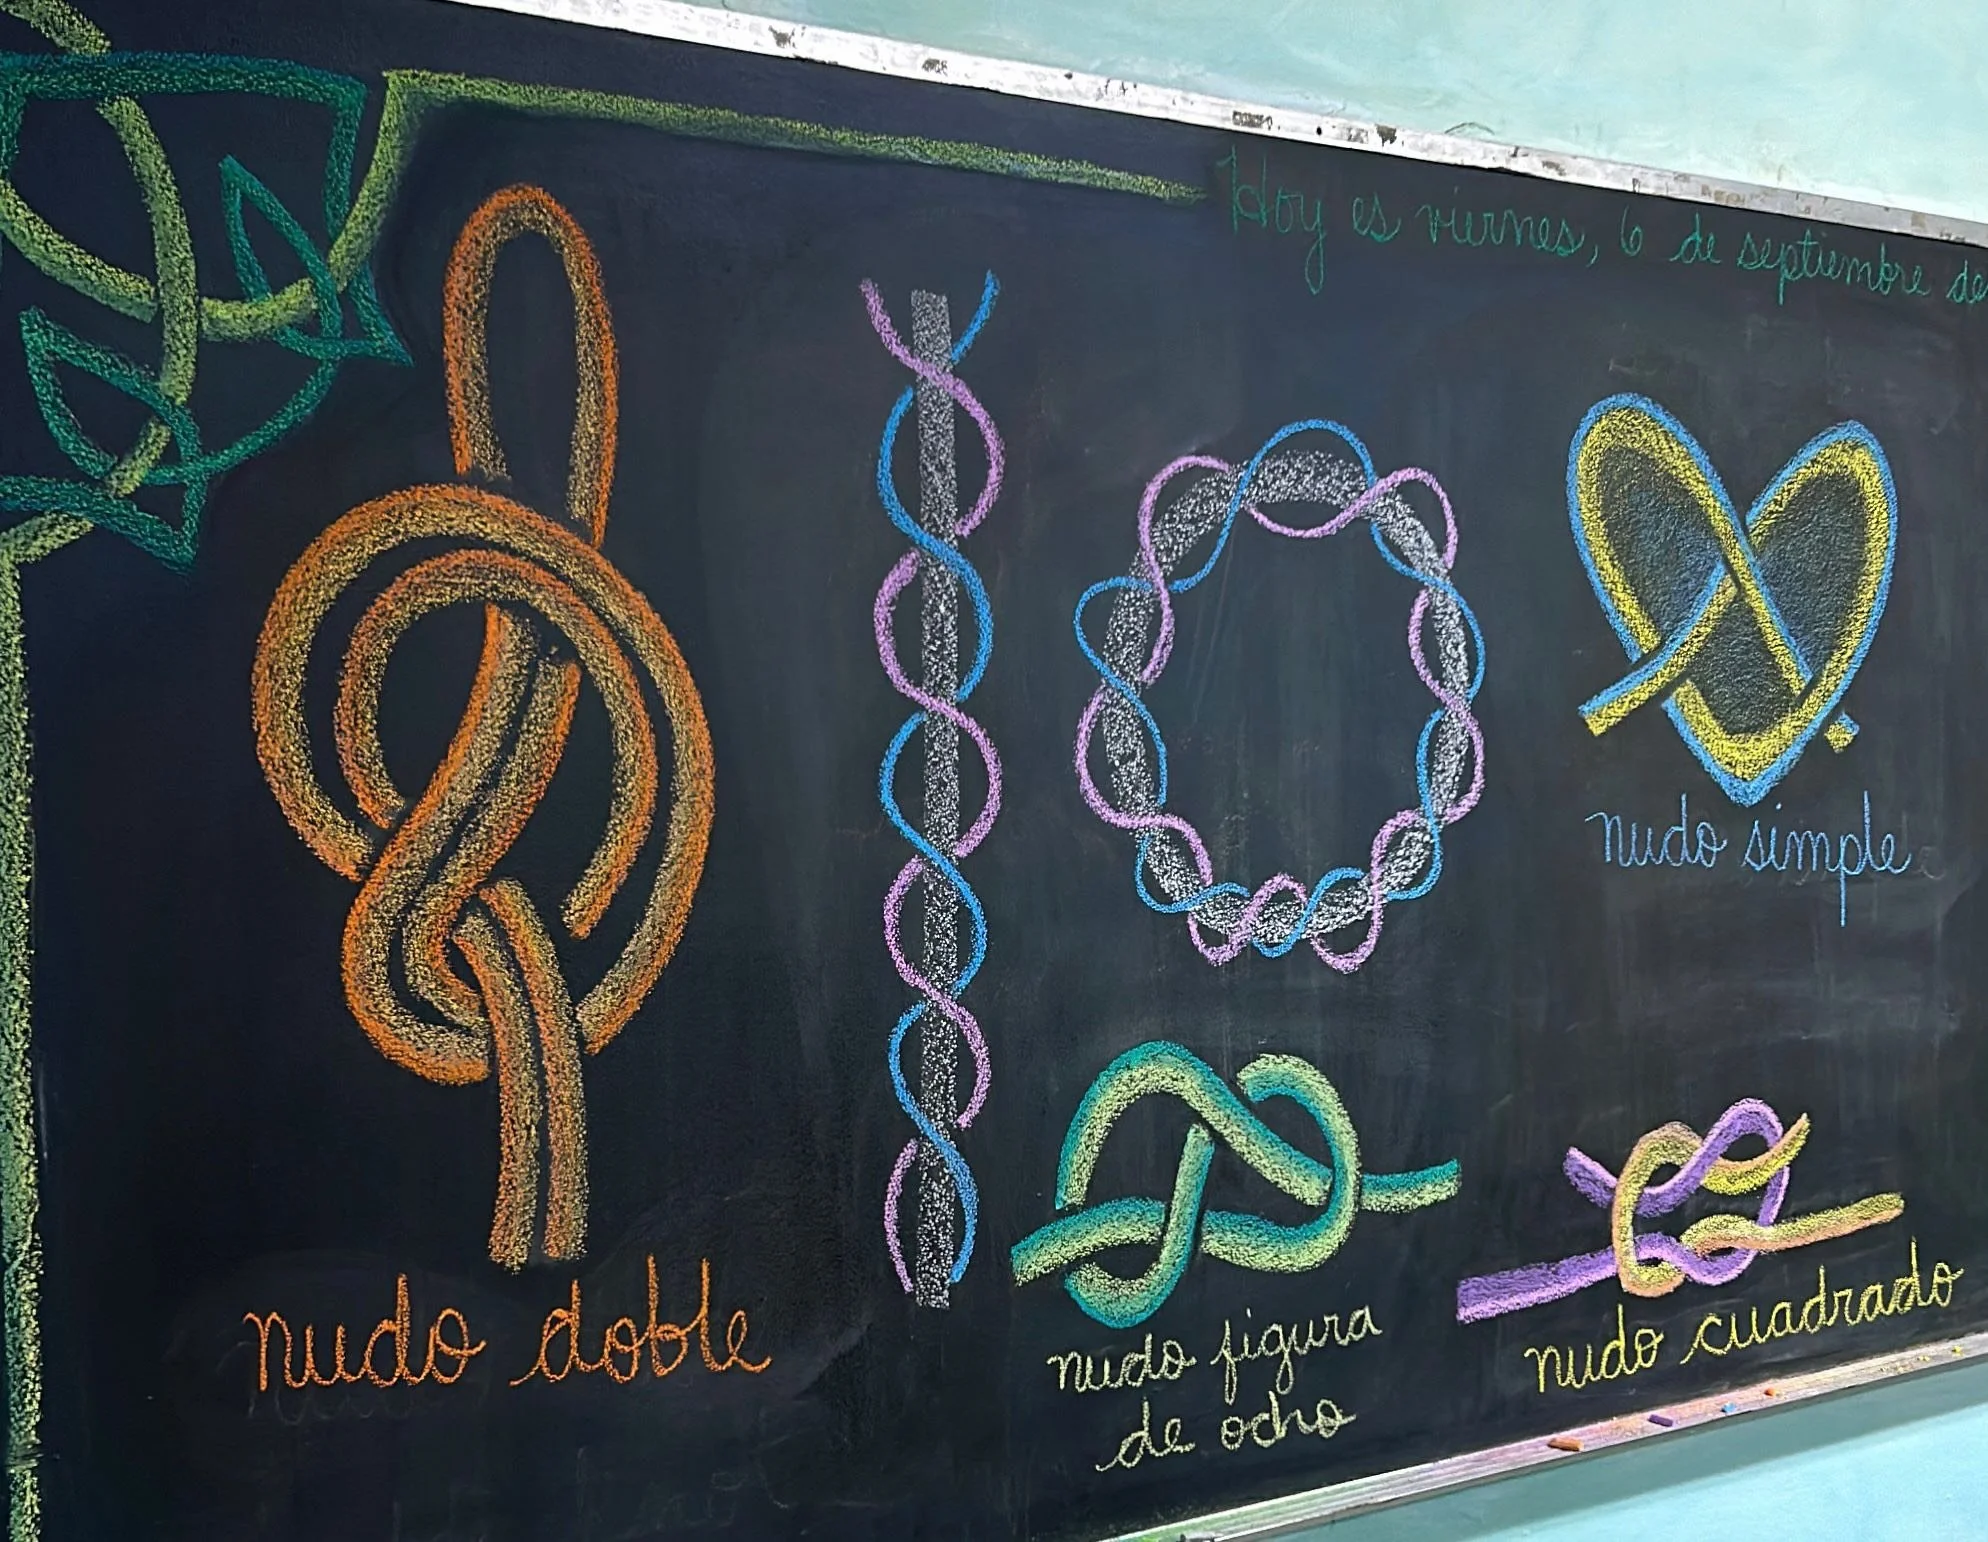 Hoy es viernes, 6 de septiembre de
nudo simple
nudo doble
nudo figura
de ocho
nudo cuadrado